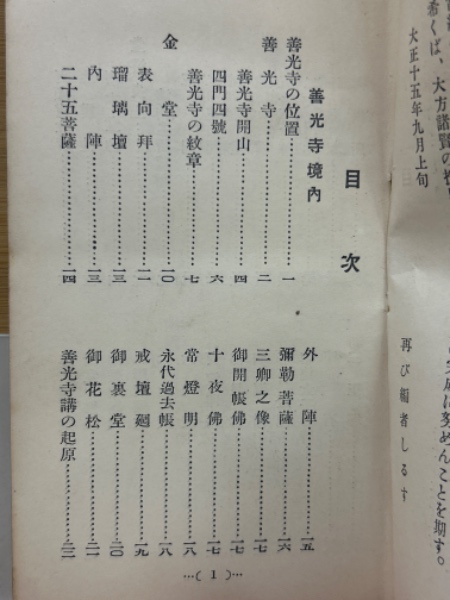 希くば、大方諸賢の
大正十五年九月上旬
再び編者しるす
めんことを期す。
目次
善光寺境內
善光寺の位置……一
善光寺……二
善光寺開山……四
四門四號……六
善光寺の紋章……七
金堂……一〇
表向拜……一一
瑠璃壇……一三
內陣……一三
二十五菩薩……一四
外陣……一五
彌勒菩薩……一六
三卿之像……一七
御開帳佛……一七
十夜佛……一七
常燈明……一八
永代過去帳……一八
戒壇廻……一九
御裏堂……二〇
御花松……二一
善光寺講の起原……二二
…( 1 )…